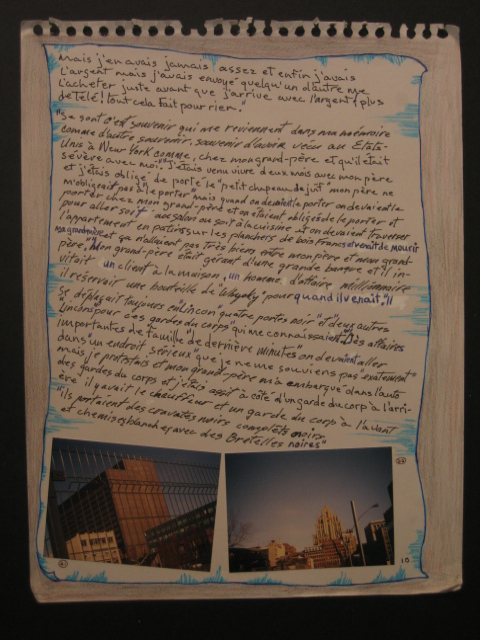 mais j'en avais jamais assez et enfin j'avais
l'argent mais j'avais envoyé quelqu'un d'autre me
l'acheter juste avant que j'arrive avec l'argent, plus
de télé! tout cela fait pour rien."
"Se sont des souvenir qui me reviennent dans ma mémoire
comme d'autre souvenir, souvenir d'avoir vécu au États-
Unis à New York comme, chez mon grand-père et qu'il était
sévère avec moi." J'étais venu vivre deux mois avec mon père
et j'étais obligé de porté le "petit chapeau de juif" mon père ne
m'obligeait pas à le porter" mais quand on devait le porter on devait le
porter chez mon grand-père et on étaient obligés de le porter et
pour aller soit au salon ou soit à la cuisine et on devait traverser
l'appartement en patins sur les planchers de bois Francs et venait de mourir
ma grandmère et ça n'allait pas très bien entre mon père et mon grand-
père." Mon grand-père était gérant d'une grande banque et il in-
vitait un client à la maison, un homme d'affaire millionnaire
il réservait une bouteille de pour quand il venait. "Il
Se déplaçait toujours en Lincon quatre portes noir "et deux autres
Lincons pour ces gardes du corps qui me connaissaient" Des affaires
importantes de famille "de dernière minutes" on devaient aller
dans un endroit sérieux "que je ne me souviens pas "exactement"
mais je protestais et mon grand-père m'a embarqué dans l'auto
des gardes du corps et j'étais assit à côté d'un garde du corp à l'arri-
ère il y avait le chauffeur et un garde du corp à l'avant
"Ils portaient des cravates noirs complets noirs
et chemises blanches avec des Bretelles noires"
10